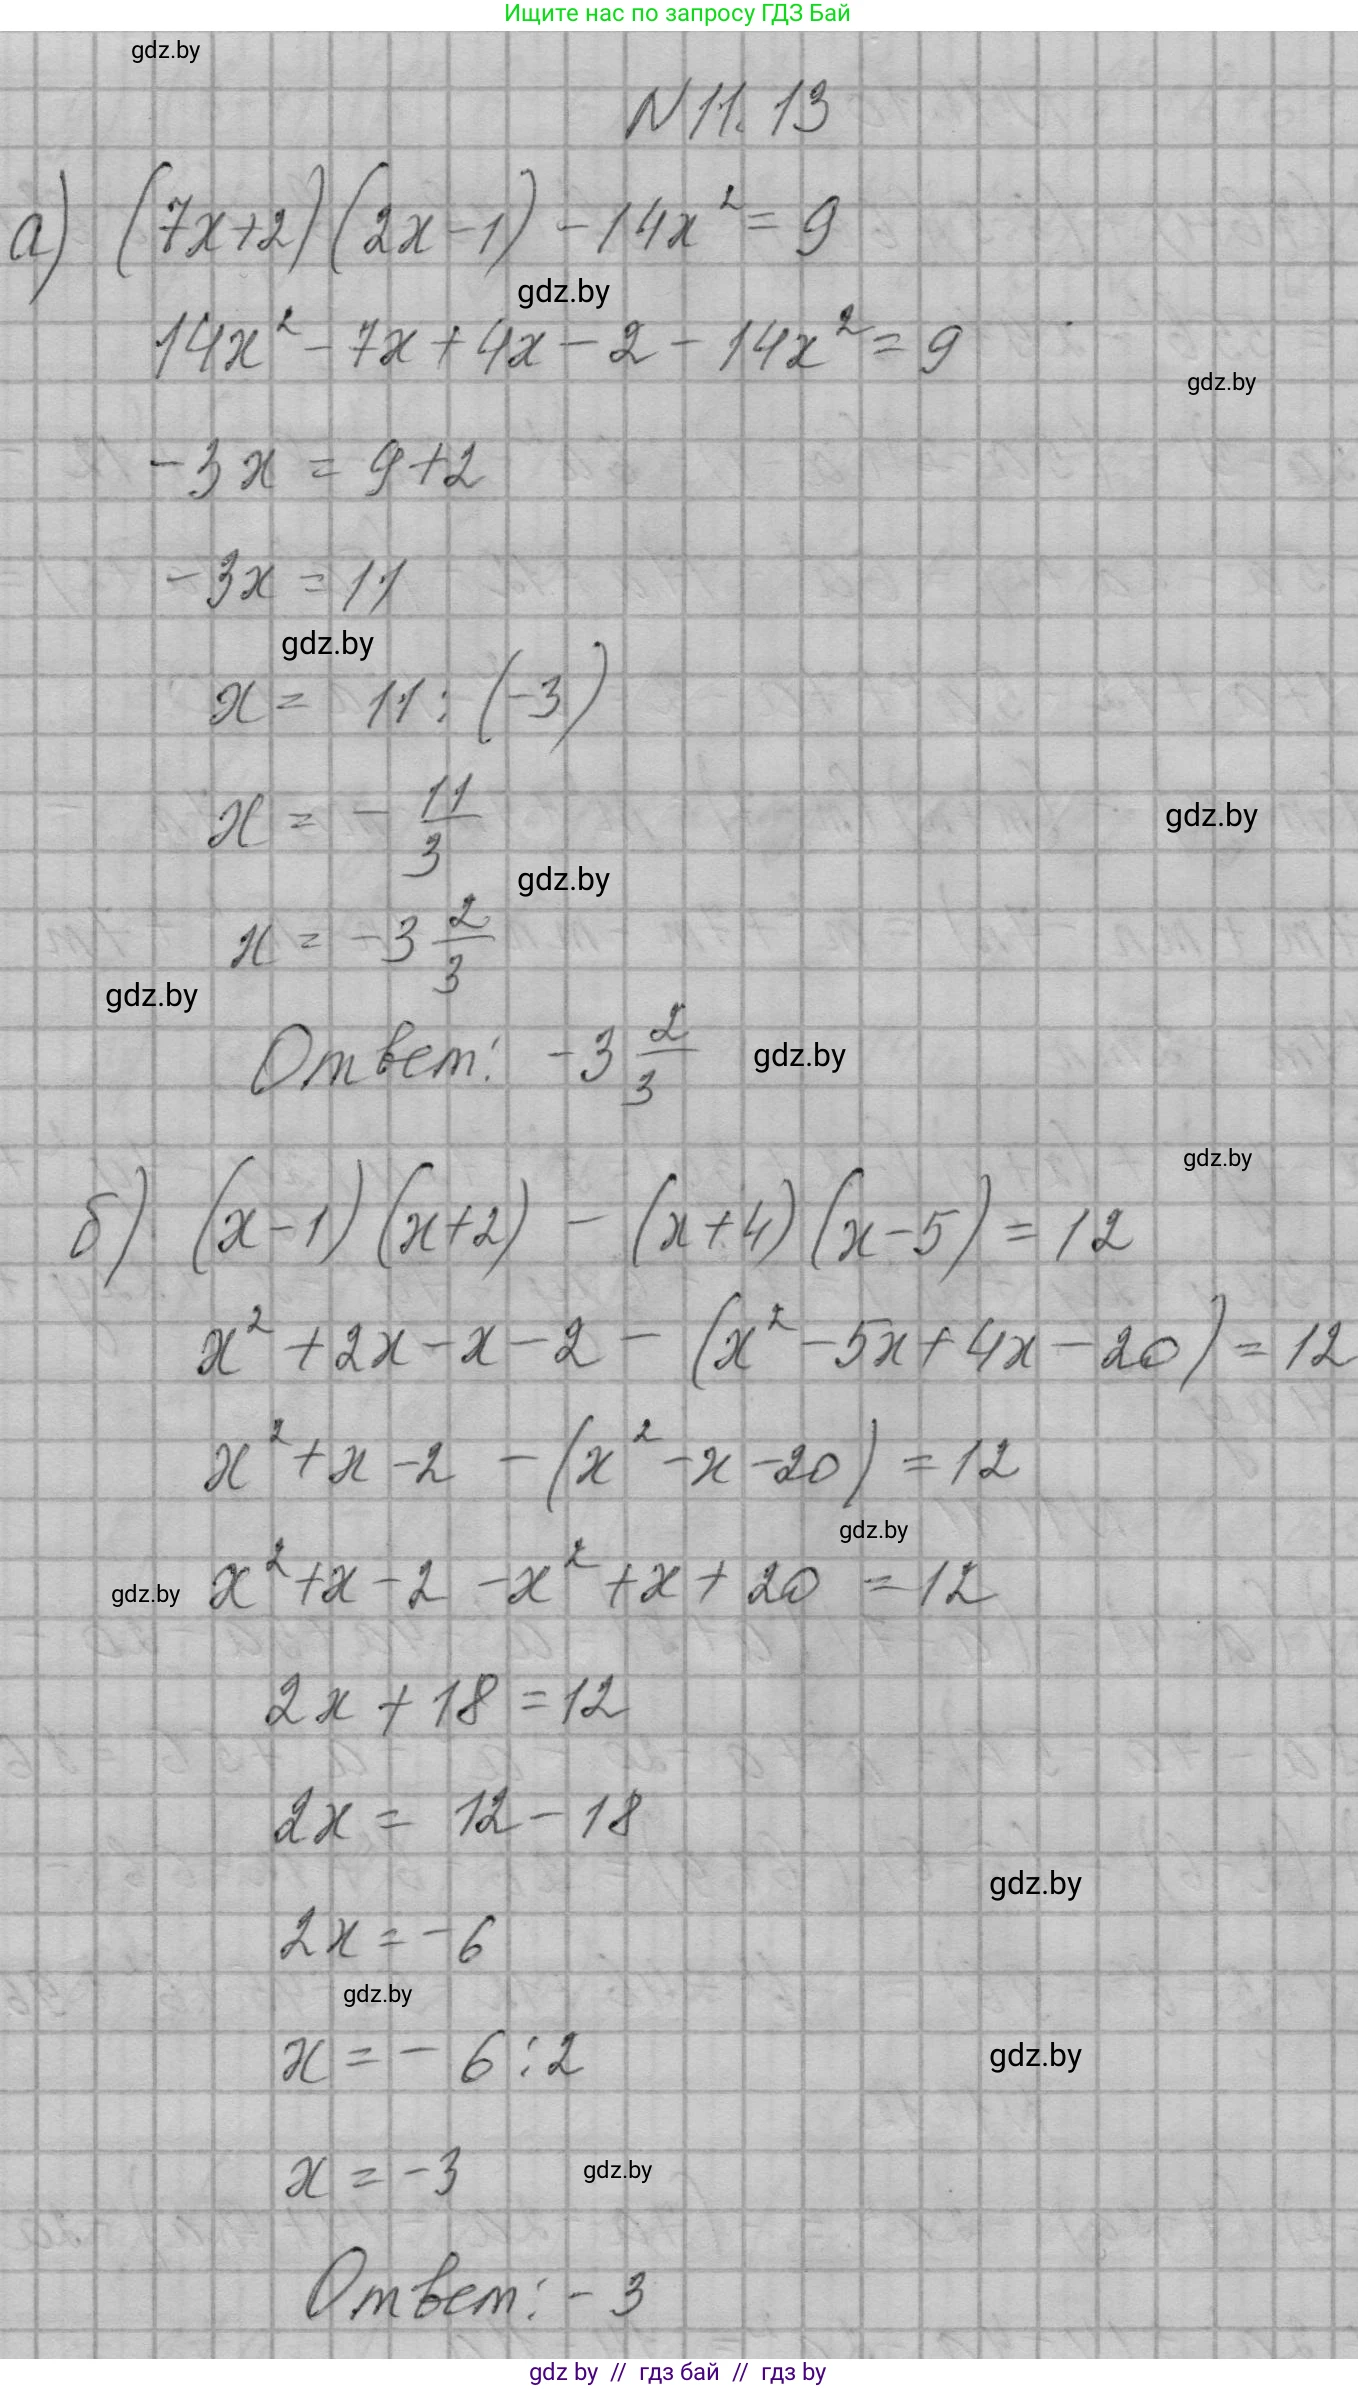 Ищите нас по запросу ГДЗ Бай
gdz.by
N 11.13
а) (7x+2)(2x-1) - 14x² = 9
gdz.by
14x² - 7x + 4x - 2 - 14x² = 9
gdz.by
-3x = 9+2
-3x = 11
gdz.by
x = 11 : (-3)
x = - 11/3
gdz.by
gdz.by
x = -3 2/3
gdz.by
Ответ: -3 2/3
gdz.by
gdz.by
б) (x-1)(x+2) - (x+4)(x-5) = 12
x² + 2x - x - 2 - (x² - 5x + 4x - 20) = 12
x² + x - 2 - (x² - x - 20) = 12
gdz.by
gdz.by
x² + x - 2 - x² + x + 20 = 12
2x + 18 = 12
2x = 12 - 18
gdz.by
2x = -6
gdz.by
x = - 6 : 2
gdz.by
x = -3
gdz.by
Ответ: - 3
gdz by // гдз бай // гдз by